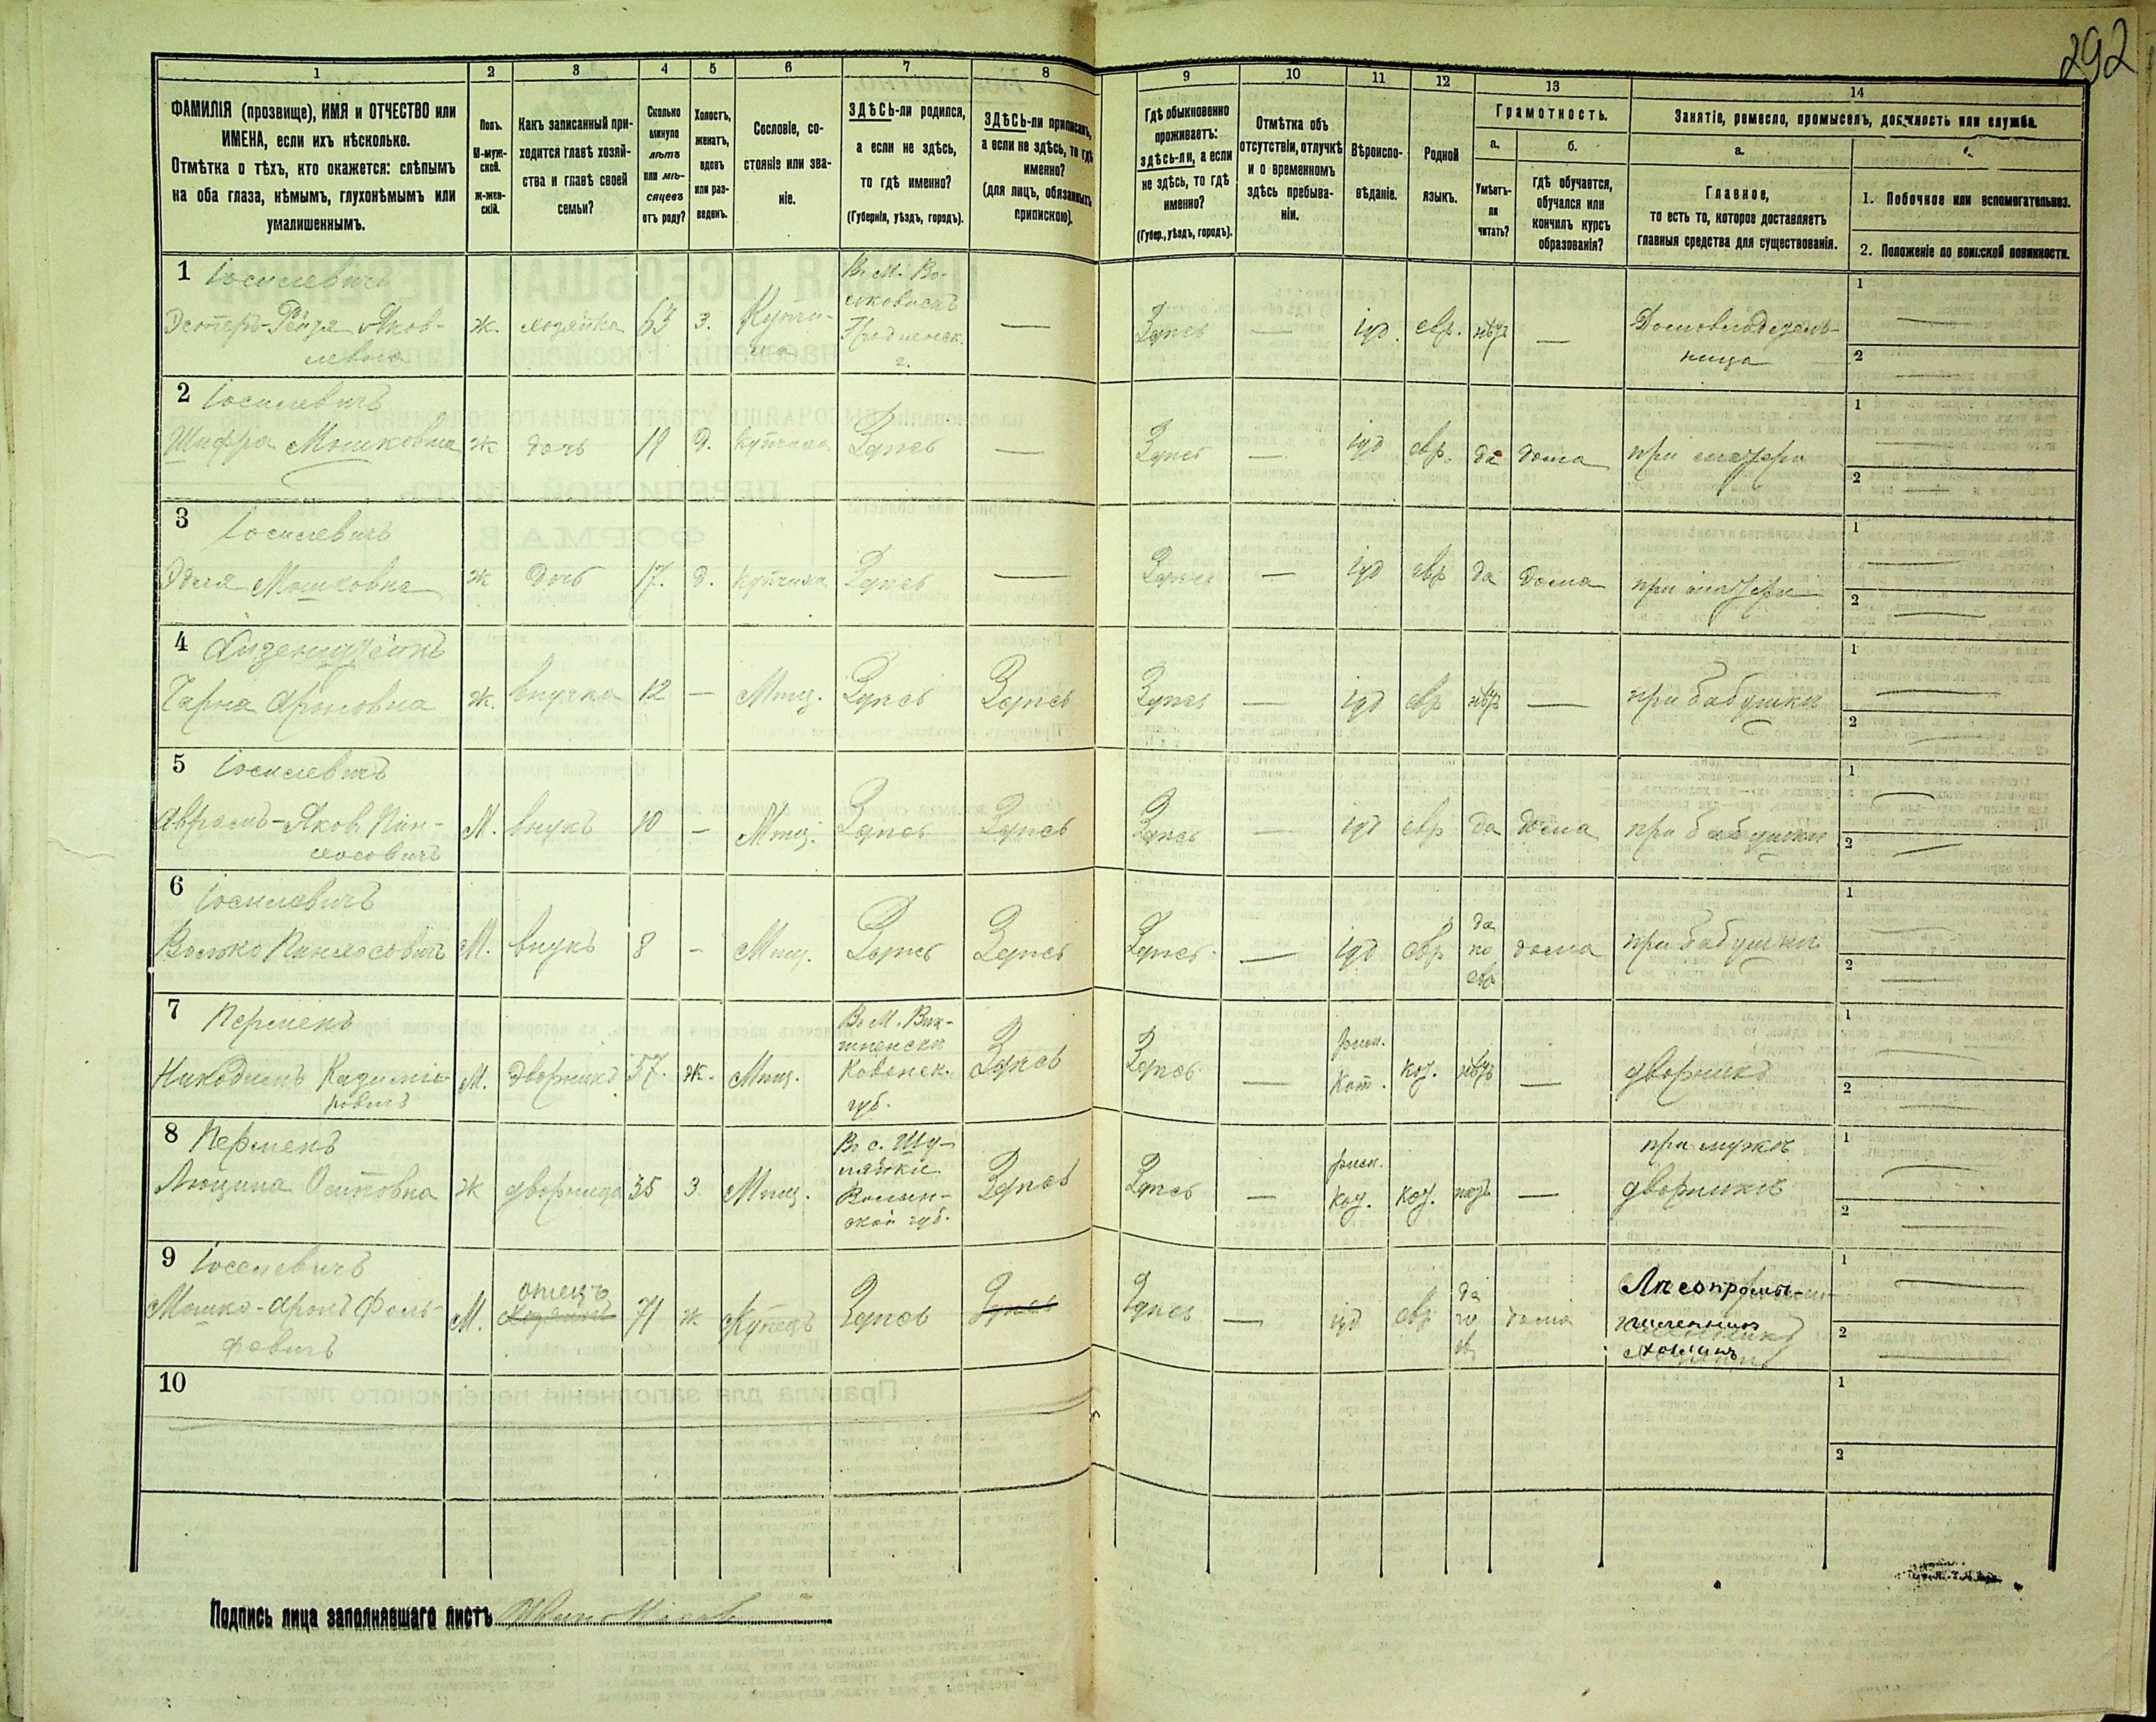 292
1 2 3 4 5 6 7 8 9 10 11 12 13 14
ФАМИЛІЯ (прозвище), ИМЯ и ОТЧЕСТВО или
ИМЕНА, если ихъ нѣсколько.
Отмѣтка о тѣхъ, кто окажется: слѣпымъ
на оба глаза, нѣмымъ, глухонѣмымъ или
умалишеннымъ.
Полъ.
М-муж-
ской.
ж-жен-
скій.
Какъ записанный при-
ходится главѣ хозяй-
ства и главѣ своей
семьи?
Сколько
минуло
лѣтъ
или мѣ-
сяцевъ
отъ роду?
Холостъ,
женатъ,
вдовъ
или раз-
веденъ.
Сословіе, со-
стояніе или зва-
ніе.
ЗДѢСЬ-ли родился,
а если не здѣсь,
то гдѣ именно?
(Губернія, уѣздъ, городъ).
ЗДѢСЬ-ли приписанъ,
а если не здѣсь, то гдѣ
именно?
(для лицъ, обязанныхъ
припискою).
Гдѣ обыкновенно
проживаетъ:
здѣсь-ли, а если
не здѣсь, то гдѣ
именно?
(Губер., уѣздъ, городъ).
Отмѣтка объ
отсутствіи, отлучкѣ
и о временномъ
здѣсь пребыва-
ніи.
Вѣроиспо-
вѣданіе.
Родной
языкъ.
Грамотность.
а.
Умѣетъ-
ли
читать?
б.
гдѣ обучается,
обучался или
кончилъ курсъ
образованія?
Занятіе, ремесло, промыселъ, должность или служба.
а.
Главное,
то есть то, которое доставляетъ
главныя средства для существованія.
1. Побочное или вспомогательное.
2. Положеніе по воинской повинности.
1 Іоселевичъ
Эстеръ-Рейзя Яков-
левна
ж. хозяйка 63 З. Купчи-
ха
Въ М. Во-
лковискъ
Гродненск.
г.
— Здѣсь — іуд. евр. нѣтъ —
Домовладѣль-
ница
1
2
2 Іоселевичъ
Шифра Мошковна ж дочь 19 Д. купчиха Здѣсь — Здѣсь — іуд евр. да дома при матери
1
2
3 Іоселевичъ
Эдля Мошковна ж дочь 17. д. купчиха Здѣсь — Здѣсь — іуд евр да дома при матери
1
2
4 Айзенштейнъ
Чарна Ароновна ж. внучка 12 — Мѣщ. Здѣсь Здѣсь Здѣсь — іуд евр нѣтъ — при бабушки
1
2
5 Іоселевичъ
Аврамъ-Яков Пин-
хосовичъ
М. внукъ 10 — Мѣщ. Здѣсь Здѣсь Здѣсь — іуд евр да дома при бабушки
1
2
6 Іоселевичъ
Волько Пинхосовичъ М. внукъ 8 — Мѣщ. Здѣсь Здѣсь Здѣсь — іуд евр
да
по
евр
дома при бабушки
1
2
7
Никодимъ Казими-
ровичъ
М. дворникъ 57. ж. Мѣщ.
Ковенск.
губ.
Здѣсь Здѣсь —
римк.
Кат.
нѣтъ — дворникъ
1
2
8
Осиповна ж дворница 35 З. Мѣщ.
Волын-
ской губ.
Здѣсь Здѣсь —
римк.
—
при мужѣ
дворникѣ
1
2
9 Іоселевичъ
Мошко-Аронъ
М.
отецъ
хозяинъ
71 ж Купецъ Здѣсь Здѣсь Здѣсь — іуд евр
да
дома
Лѣсопромы-
шленникъ
хозяинъ
1
2
10
1
2
Подпись лица заполнявшаго листъ